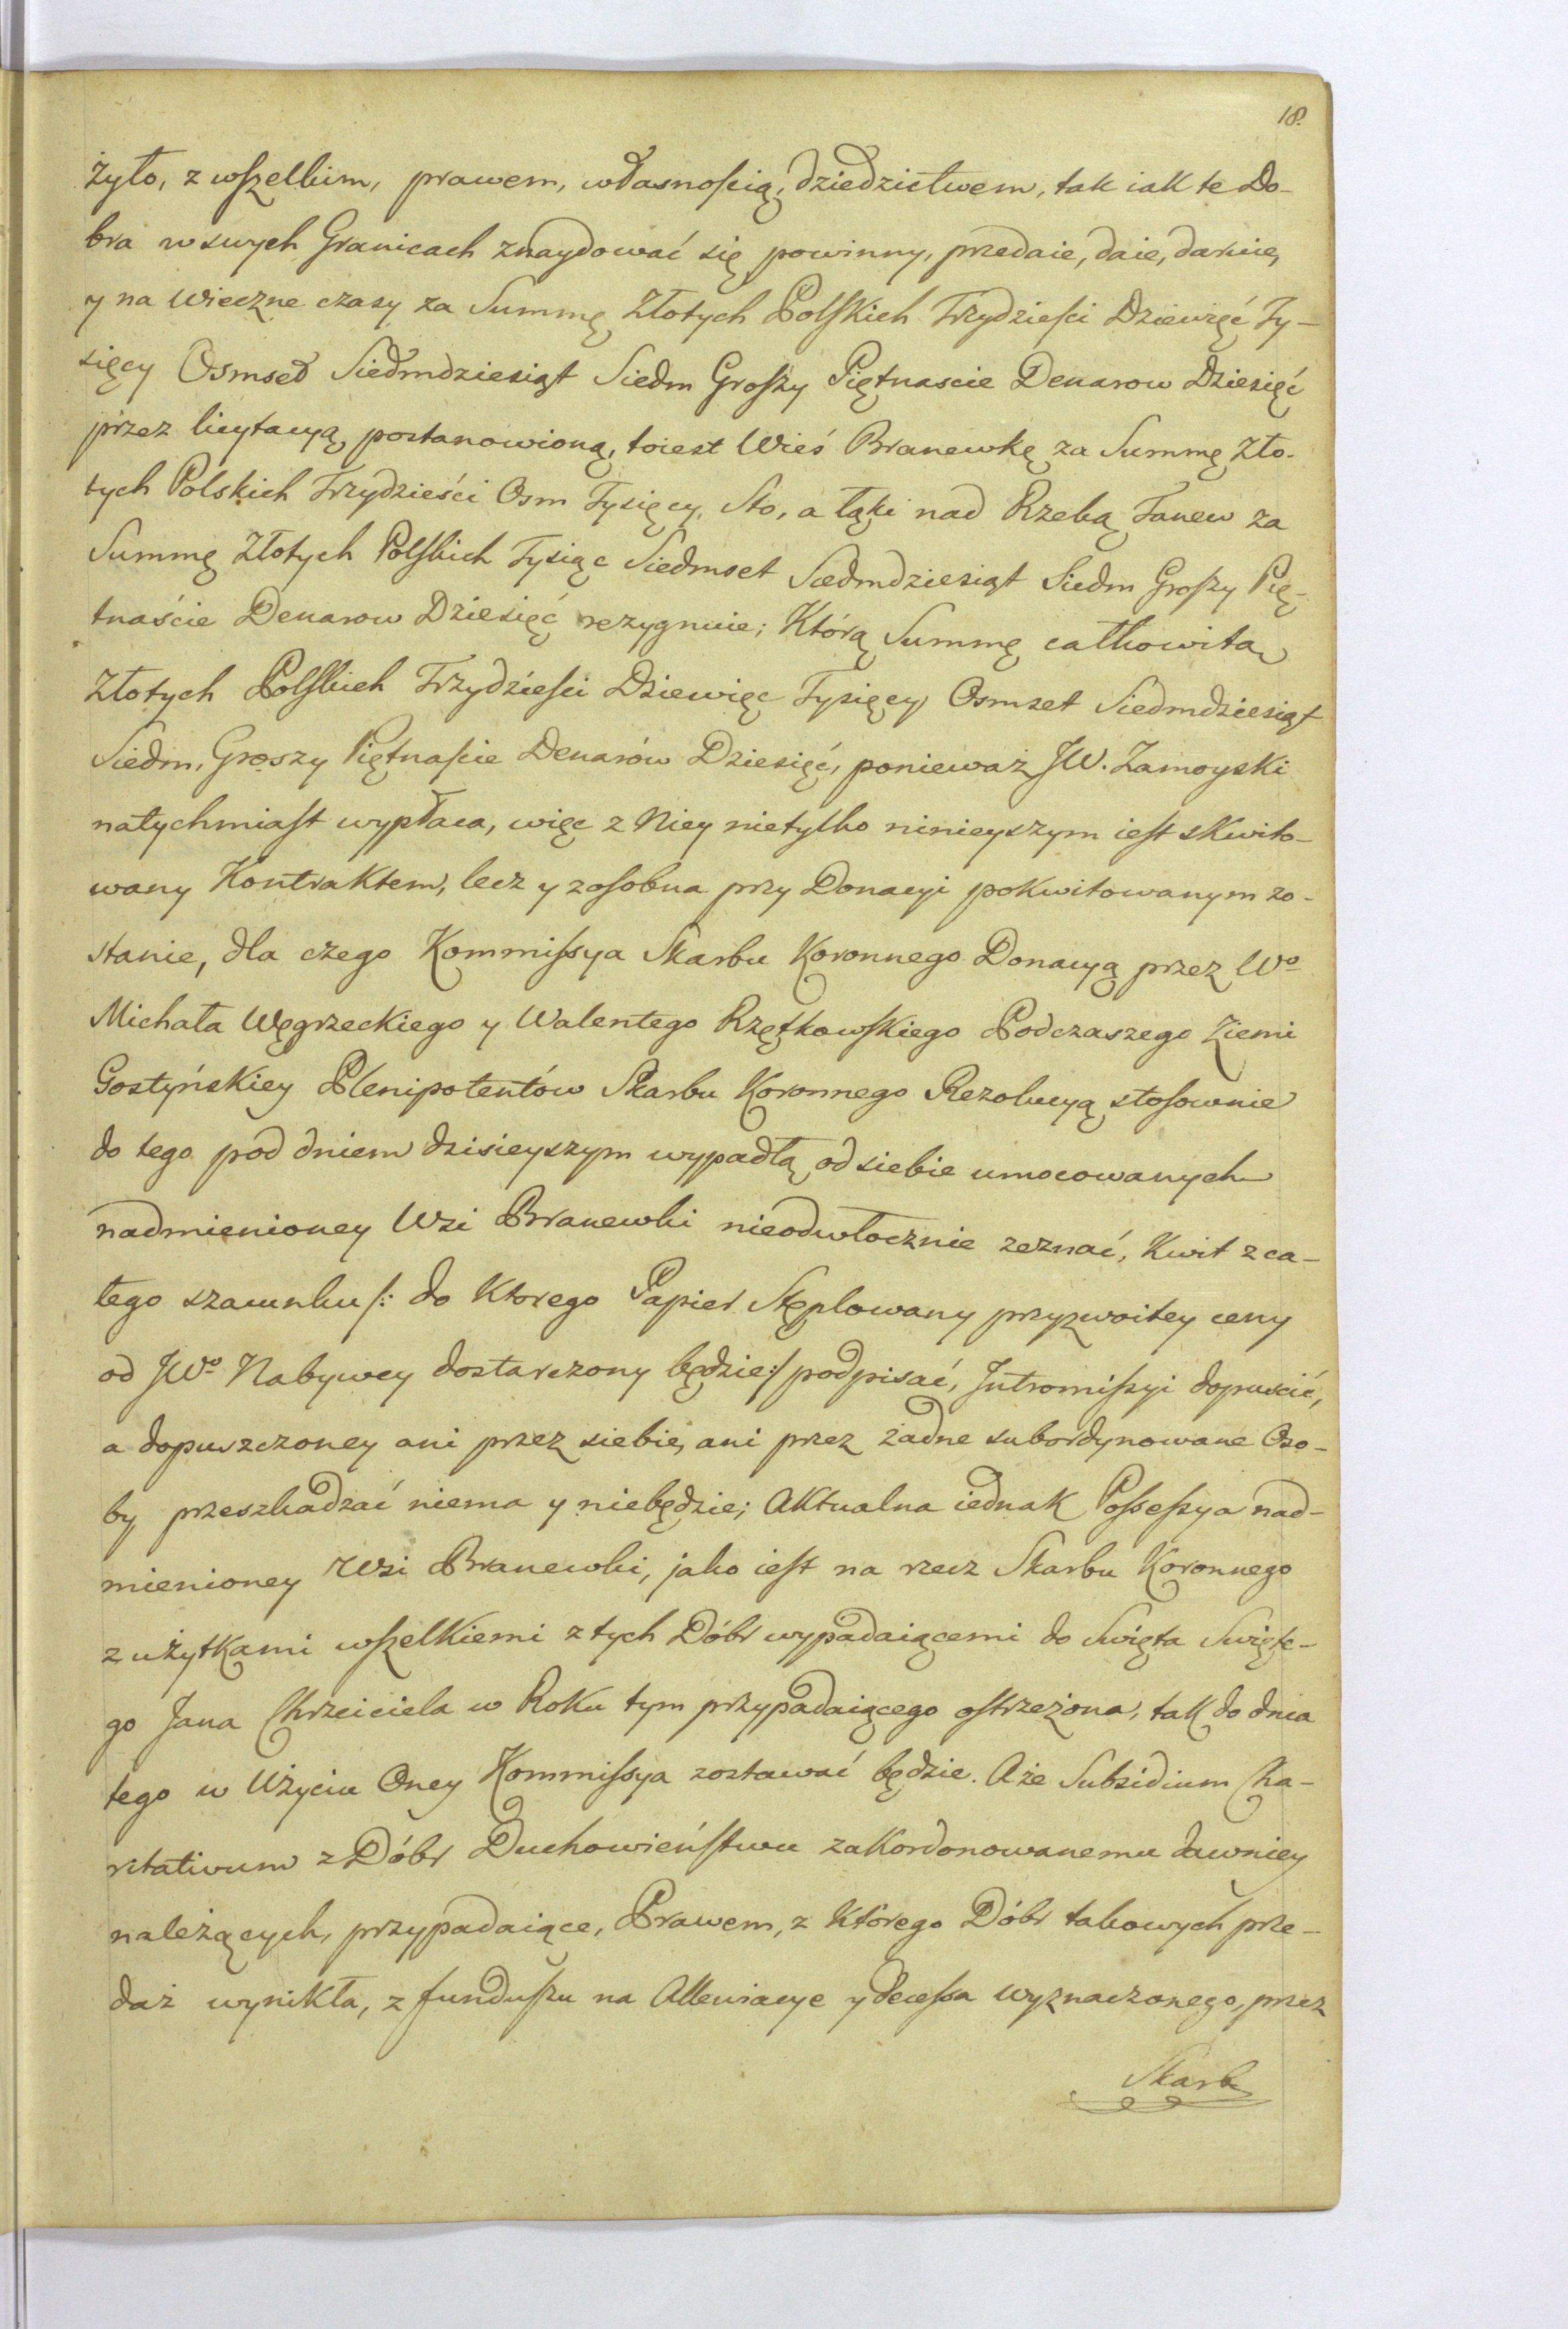 18.
żyło, z wszelkim, prawem, własnością, dziedzictwem, tak iak te Do-
bra w swych Granicach znaydować się powinny, przedaie, daie, daruie,
y na Wieczne czasy za Summę Złotych Polskich Trzydzieści Dziewięć Ty-
sięcy Osmset Siedmdziesiąt Siedm Groszy Piętnascie Denarow Dziesięć
przez licytacyą postanowioną, toiest Wieś Branewkę za Summę Zło-
tych Polskich Trzydzieści Osm Tysięcy, Sto, a łąki nad Rzeką Tanew za
Summę Złotych Polskich Tysiąc Siedmset Siedmdziesiąt Siedm Groszy Pię-
tnaście Denarow Dziesięć rezygnuie; Którą Summę całkowitą
Złotych Polskich Trzydzieści Dziewięc Tysięcy Osmset Siedmdziesiąt
Siedm, Groszy Piętnaście Denarów Dziesięć, ponieważ JW. Zamoyski
natychmiast wypłaca, więc z Niey nietylko ninieyszym iest skwito-
wany Kontraktem, lecz y zosobna przy Donacyi pokwitowanym zo-
stanie, dla czego Kommissya Skarbu Koronnego Donacyą przez Wo
Michała Węgrzeckiego y Walentego Rzętkowskiego Podczaszego Ziemi
Gostyńskiey Plenipotentów Skarbu Koronnego Rezolucyą stosownie
do tego pod dniem dzisieyszym wypadłą od siebie umocowanych
nadmienioney Wsi Branewki nieodwłocznie zeznać, Kwit z ca-
łego szacunku /: do Ktorego Papier Stęplowany przyzwoitey ceny
od JWo Nabywcy dostarczony będzie :/ podpisać, Intromissyi dopuscić,
a dopuszczoney ani przez siebie, ani przez żadne subordynowane Oso-
by przeszkadzać niema y niebędzie; Aktualna iednak Possessya nad-
mienioney Wsi Branewki, jako iest na rzecz Skarbu Koronnego
z użytkami wszelkiemi z tych Dóbr wypadaiącemi do Swięta Swięte-
go Jana Chrzciciela w Roku tym przypadaiącego ostrzeżona, tak do dnia
tego w Użyciu Oney Kommissya zostawać będzie. Aże Subsidium Cha-
ritativum z Dóbr Duchowieństwu zakordonowanemu dawniey
należących, przypadaiące, Prawem, z którego Dóbr takowych prze-
daż wynikła, z funduszu na Allewiacye y decessa wyznaczonego, przez
Skarb